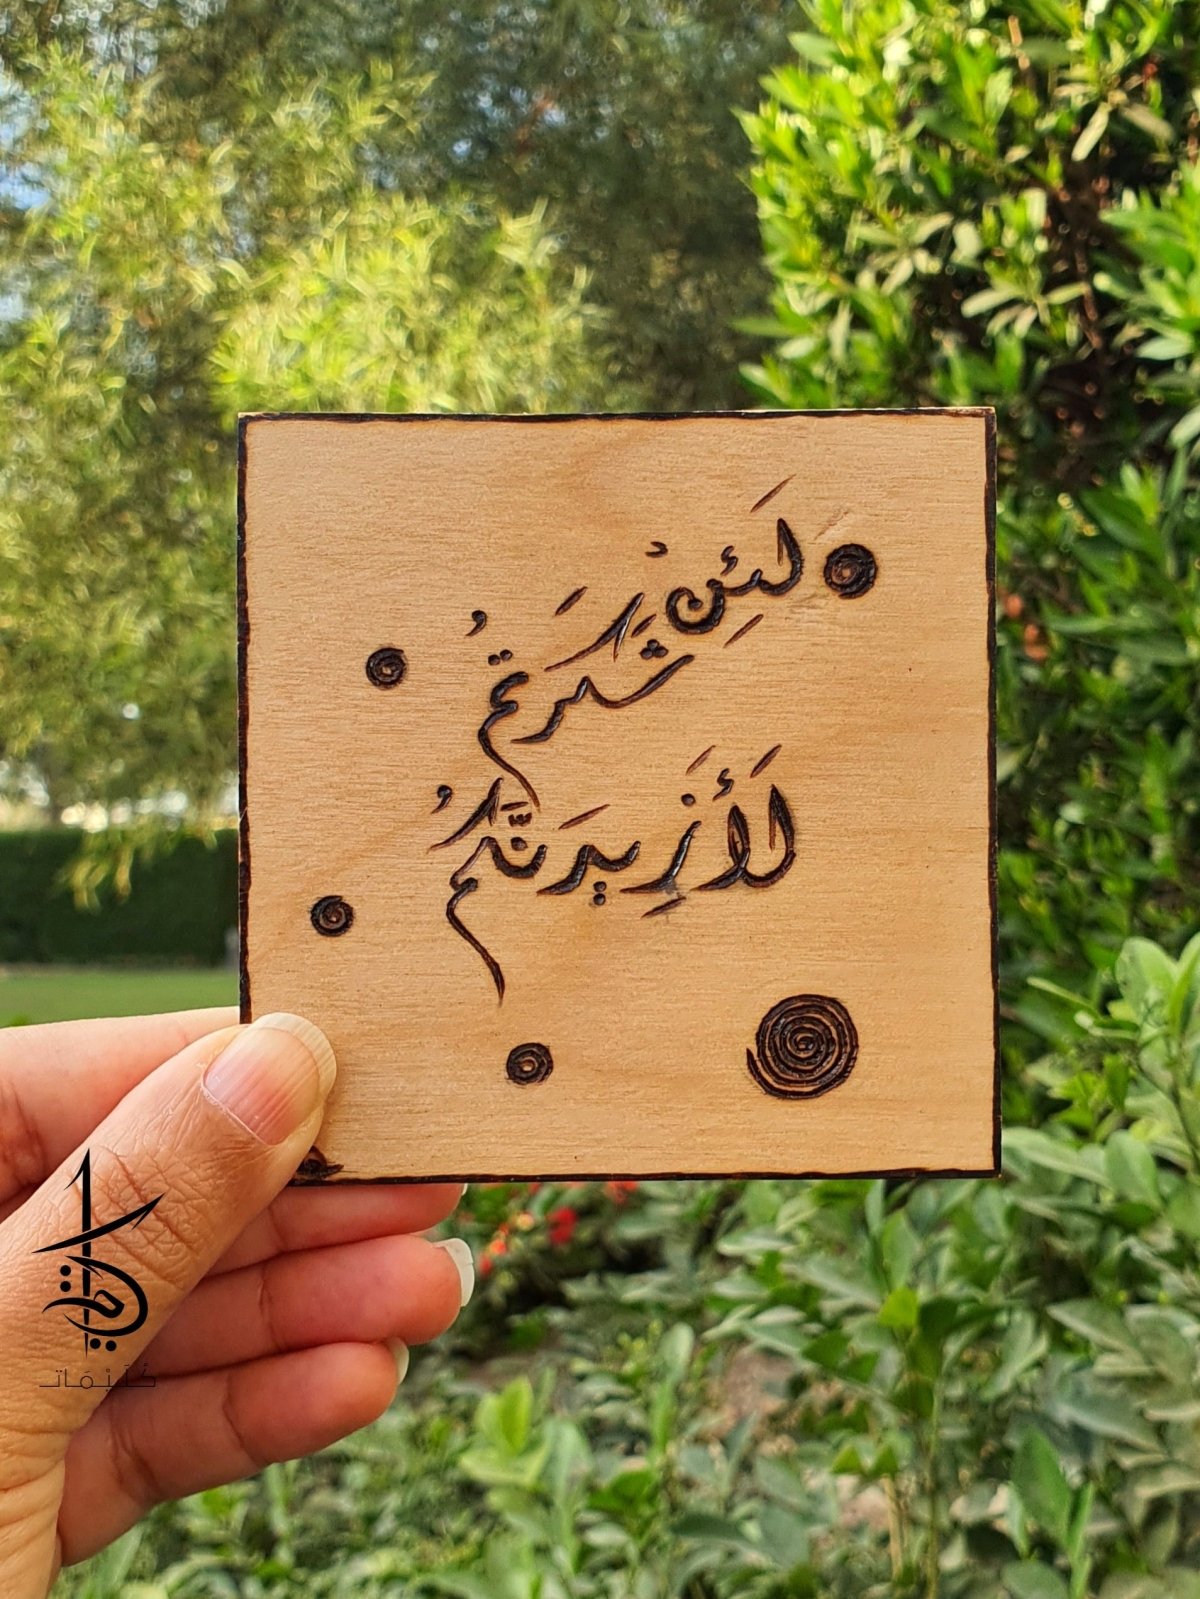 لَئِنْ شَكَرتُمُ
لَأَزِيدَنَّكُم
كُتَيْمَات